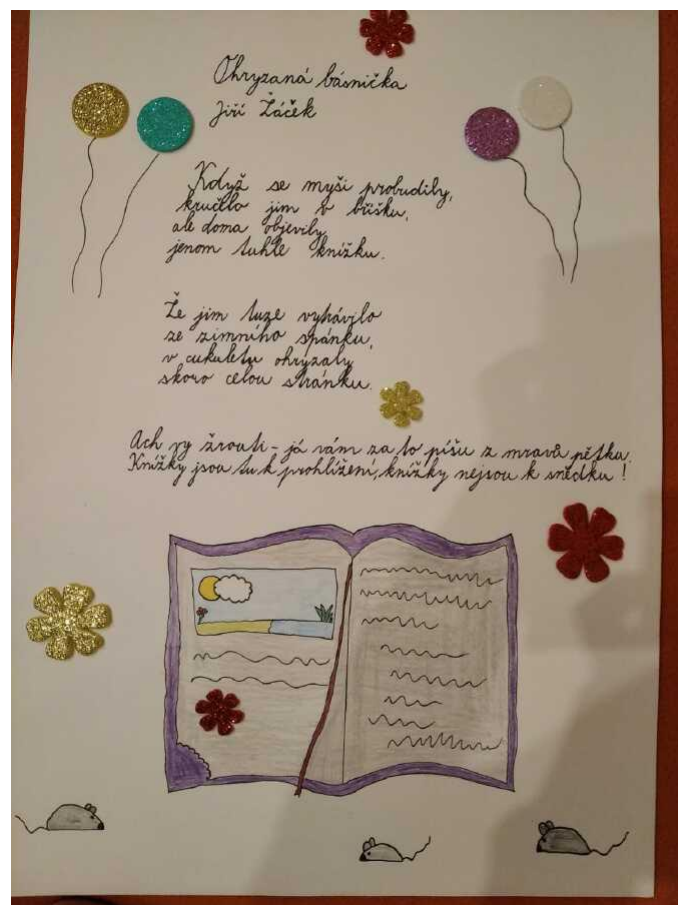 Ohryzaná básnička
Jiří Žáček
Když se myši probudily,
kručelo jim v bříšku,
ale doma objevily
jenom tuhle knížku.
Že jim tuze vyhávilo
ze zimního spánku,
v cukuletu ohryzaly
skoro celou stránku.
Ach vy žrouti - já vám za to píšu z mravů pětku.
Knížky jsou tu k prohlížení, knížky nejsou k snědku!